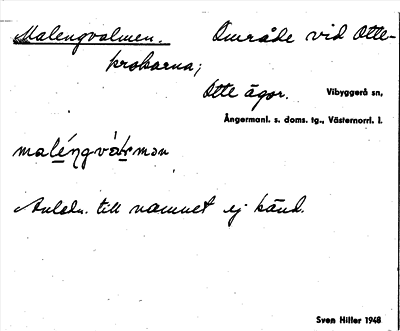 Malengvalmen. Område vid Otte-
krokarna;
Otte ägor. Vibyggerå sn,
Ångermanl. s. doms. tg., Västernorrl. l.
maléŋgvàlmən
Anledn. till namnet ej känd.
Sven Hiller 1948